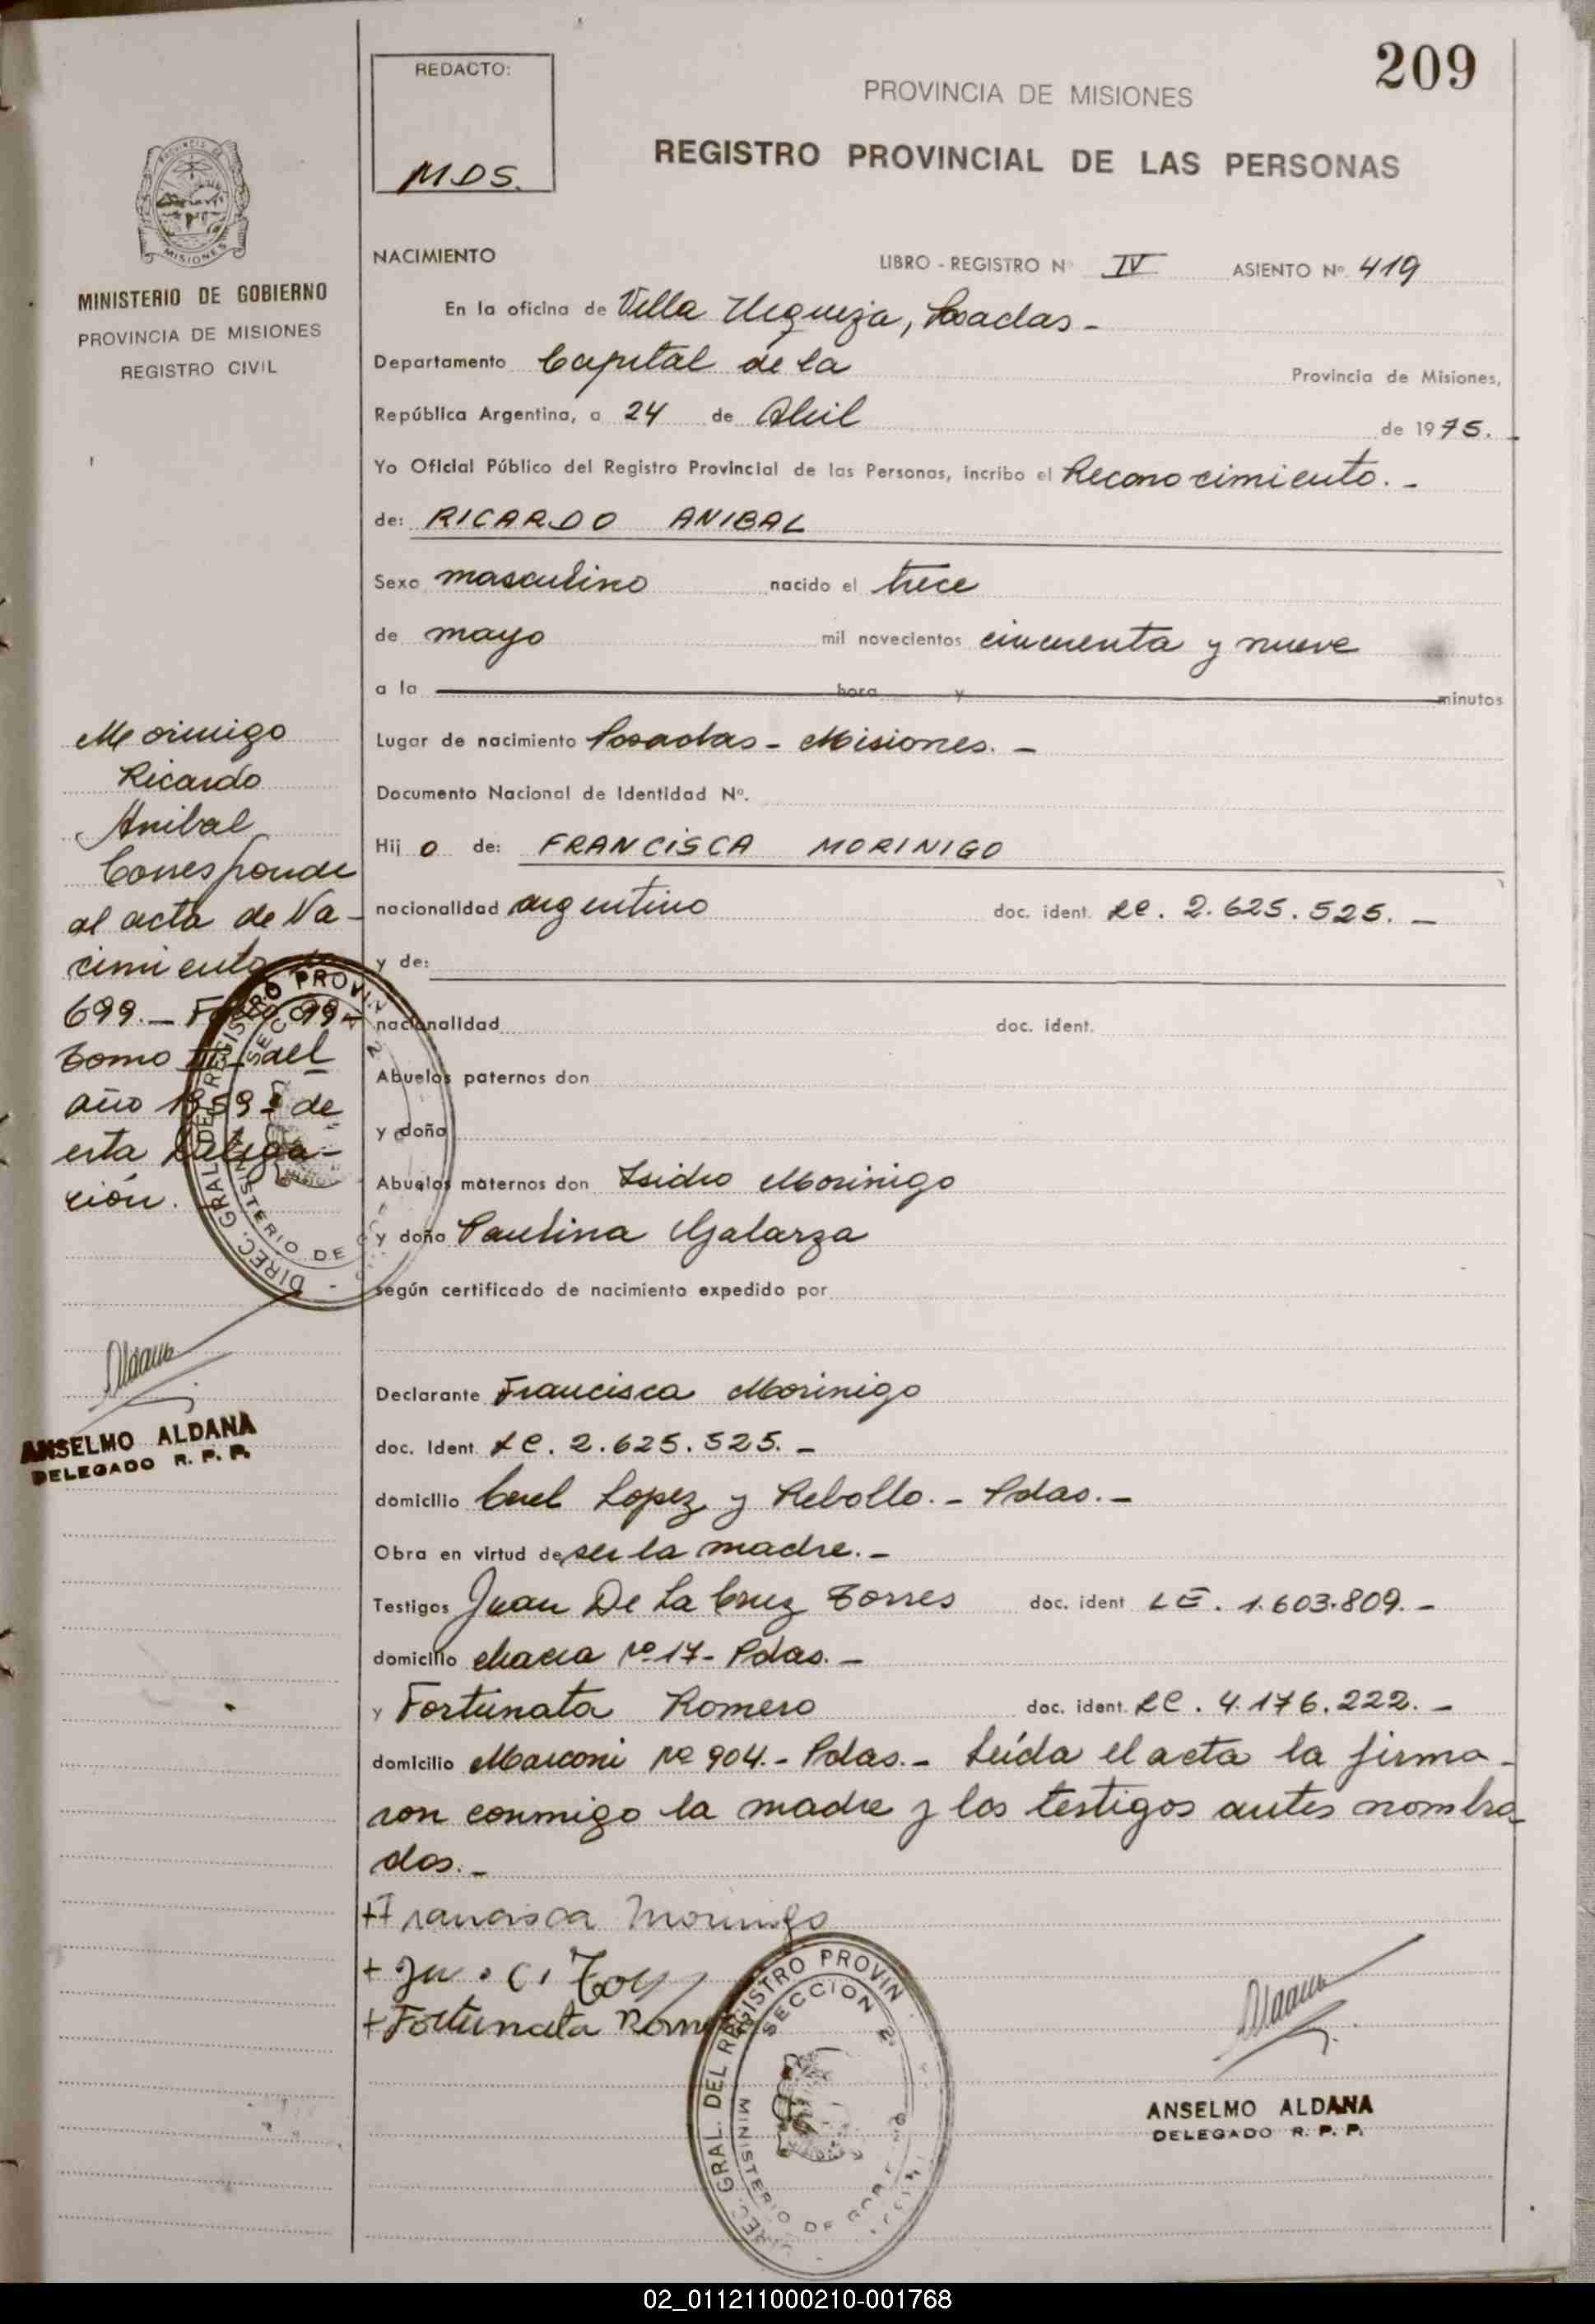 209
REDACTO:
M.D.S.
PROVINCIA DE MISIONES
REGISTRO PROVINCIAL DE LAS PERSONAS
MISIONES
MINISTERIO DE GOBIERNO
PROVINCIA DE MISIONES
REGISTRO CIVIL
NACIMIENTO LIBRO - REGISTRO Nº IV ASIENTO Nº 419
En la oficina de Villa Urquiza, Posadas -
Departamento Capital de la Provincia de Misiones,
República Argentina, a 24 de Abril de 1975. -
Yo Oficial Público del Registro Provincial de las Personas, incribo el Reconocimiento. -
de: RICARDO ANIBAL
Sexo masculino nacido el trece
de mayo mil novecientos cincuenta y nueve
a la hora y minutos
Lugar de nacimiento Posadas - Misiones. -
Documento Nacional de Identidad Nº.
Hij o de: FRANCISCA MORINIGO
nacionalidad argentino doc. ident. LC. 2.625.525. -
y de:
nacionalidad doc. ident.
Abuelos paternos don
y doña
Abuelos maternos don Isidro Morinigo
y doña Paulina Galarza
según certificado de nacimiento expedido por
Declarante Francisca Morinigo
doc. Ident. LC. 2.625.525. -
domicilio Cnel Lopez y Rebollo. - Pdas. -
Obra en virtud de ser la madre. -
Testigos Juan De La Cruz Torres doc. ident LE. 1.603.809. -
domicilio chacra Nº 17 - Pdas. -
y Fortunata Romero doc. ident. LC. 4.176.222. -
domicilio Marconi Nº 904. - Pdas. - Leída el acta la firma-
ron conmigo la madre y los testigos antes nombra-
dos. -
+ Francisca Morinigo
+ Fortunata Romero
DIREC. GRAL. DEL REGISTRO PROVIN
SECCION 2ª
MINISTERIO DE GOB
Aldana
ANSELMO ALDANA
DELEGADO R. P. P.
Morinigo
Ricardo
Anibal
Corresponde
al acta de Na-
cimiento Nº
699. - Folio 99 -
Tomo III del
año 1959 - de
esta Delega-
ción.
DIREC. GRAL. DEL REGISTRO PROVIN
SECCION 2
MINISTERIO DE
Aldana
ANSELMO ALDANA
DELEGADO R. P. P.
02_011211000210-001768